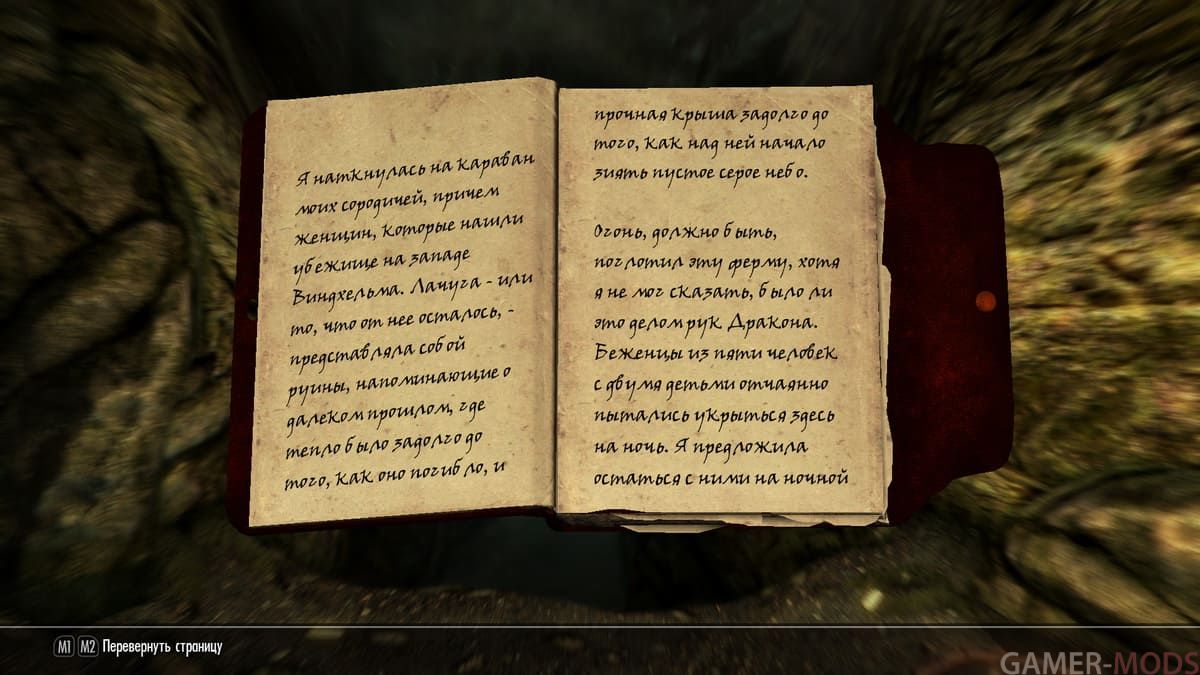 Я наткнулась на караван
моих сородичей, причем
женщин, которые нашли
убежище на западе
Виндхельма. Лачуга - или
то, что от нее осталось, -
представляла собой
руины, напоминающие о
далеком прошлом, где
тепло было задолго до
того, как оно погибло, и
прочная крыша задолго до
того, как над ней начало
зиять пустое серое небо.
Огонь, должно быть,
поглотил эту ферму, хотя
я не мог сказать, было ли
это делом рук Дракона.
Беженцы из пяти человек
с двумя детьми отчаянно
пытались укрыться здесь
на ночь. Я предложила
остаться с ними на ночной
M1 M2 Перевернуть страницу
GAMER-MODS